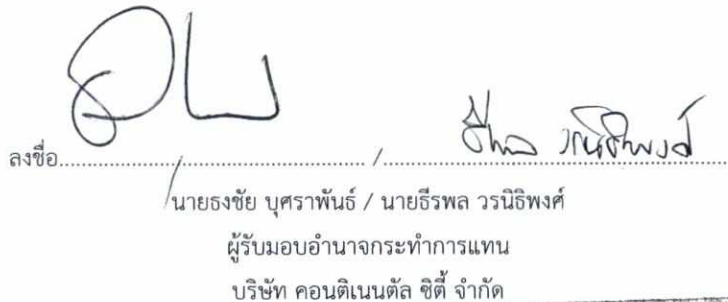 ลงชื่อ............................................... / ธีรพล วรนิธิพงศ์
นายธงชัย บุศราพันธ์ / นายธีรพล วรนิธิพงศ์
ผู้รับมอบอำนาจกระทำการแทน
บริษัท คอนติเนนตัล ซิตี้ จำกัด